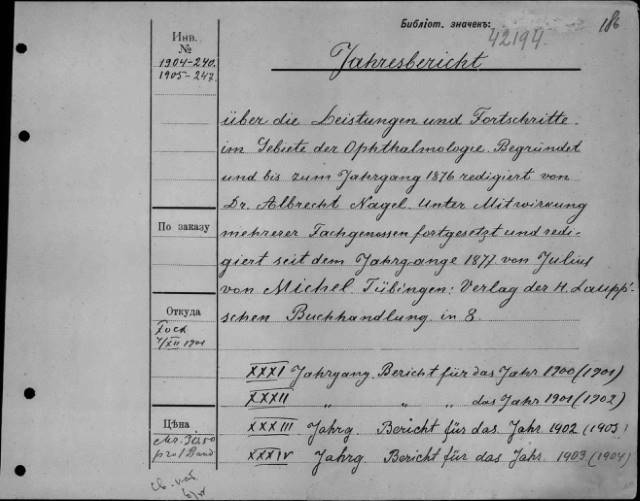 Библіот. значекъ:
186
42194.
Инв.
№
1904-240.
1905-247.
Jahresbericht.
über die Leistungen und Fortschritte
im Gebiete der Ophthalmologie. Begründet
und bis zum Jahrgang 1876 redigiert von
Dr. Albrecht Nagel. Unter Mitwirkung
mehrerer Fachgenossen fortgesetzt und redi-
giert seit dem Jahrgange 1877 von Julius
von Michel. Tübingen: Verlag der H. Laupp'
schen Buchhandlung. in 8.
По заказу
Откуда
XII 1901
Цѣна
pro 1 Band
XXXI Jahrgang. Bericht für das Jahr 1900 (1901)
XXXII " " " das Jahr 1901 (1902)
XXXIII Jahrg. Bericht für das Jahr 1902 (1903)
XXXIV Jahrg. Bericht für das Jahr 1903 (1904)